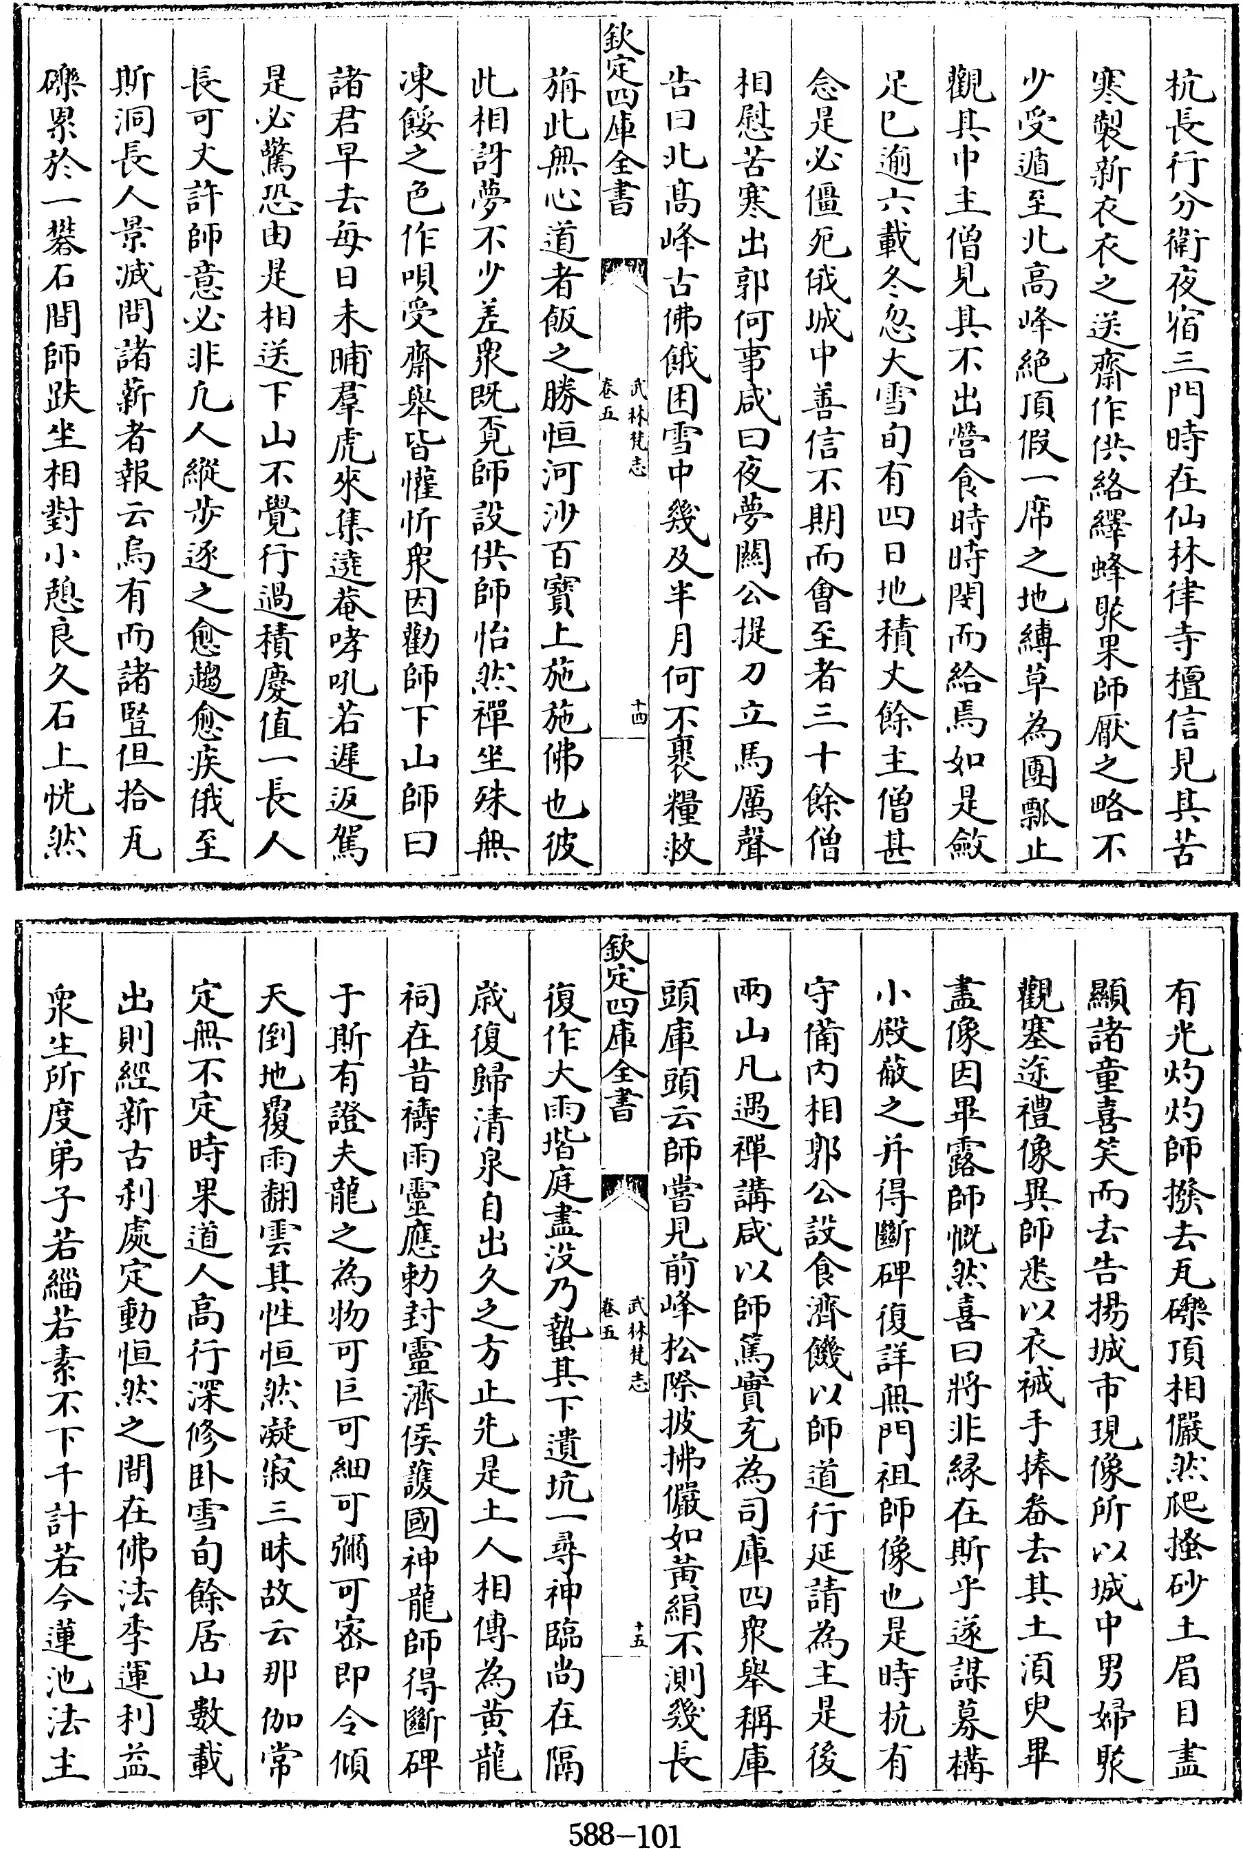 杭長行分衛夜宿三門時在仙林律寺檀信見其苦
寒製新衣衣之送齋作供絡繹蜂聚果師厭之略不
少受遁至北高峰絶頂假一席之地縛草為團瓢止
觀其中主僧見其不出營食時時閔而給焉如是歛
足已逾六載冬忽大雪旬有四日地積丈餘主僧甚
念是必僵死俄城中善信不期而會至者三十餘僧
相慰苦寒出郭何事咸曰夜夢關公提刀立馬厲聲
告曰北髙峰古佛餓困雪中幾及半月何不裹糧救
欽定四庫全書
武林梵志
卷五
十四
旃此無心道者飯之勝恒河沙百寶上施施佛也彼
此相訝夢不少差衆既覔師設供師怡然禪坐殊無
凍餒之色作唄受齋舉皆懽忻衆因勸師下山師曰
諸君早去每日未晡羣虎來集遶菴哮吼若遲返駕
是必驚恐由是相送下山不覺行過積慶值一長人
長可丈許師意必非凡人縱步逐之愈趨愈疾俄至
斯洞長人景滅問諸薪者報云烏有而諸豎但拾瓦
礫累於一礬石間師趺坐相對小憩良久石上恍然
有光灼灼師撥去瓦礫頂相儼然爬搔砂土眉目盡
顯諸童喜笑而去告揚城市現像所以城中男婦聚
觀塞途禮像異師悉以衣裓手捧畚去其土湏臾畢
盡像因畢露師慨然喜曰將非縁在斯乎遂謀募構
小殿蔽之并得斷碑復詳無門祖師像也是時杭有
守備内相郭公設食濟饑以師道行延請為主是後
兩山凡遇禪講咸以師篤實充為司庫四衆舉稱庫
頭庫頭云師嘗見前峰松際披拂儼如黄絹不測幾長
欽定四庫全書
武林梵志
卷五
十五
復作大雨堦庭盡没乃蟄其下遺坑一尋神臨尚在隔
歳復歸清泉自出久之方止先是土人相傳為黄龍
祠在昔禱雨靈應勅封靈濟侯護國神龍師得斷碑
于斯有證夫龍之為物可巨可細可彌可宻即令傾
天倒地覆雨翻雲其性恒然凝寂三昧故云那伽常
定無不定時果道人高行深修卧雪旬餘居山數載
出則經新古刹處定動恒然之間在佛法季運利益
衆生所度弟子若緇若素不下千計若今蓮池法主
588-101